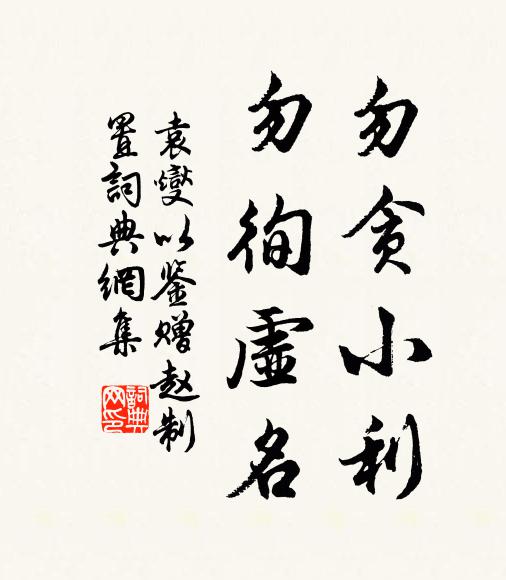 勿贪小利
勿徇虚名
袁燮以鉴赠赵制
置詞典網集
詞典
网印